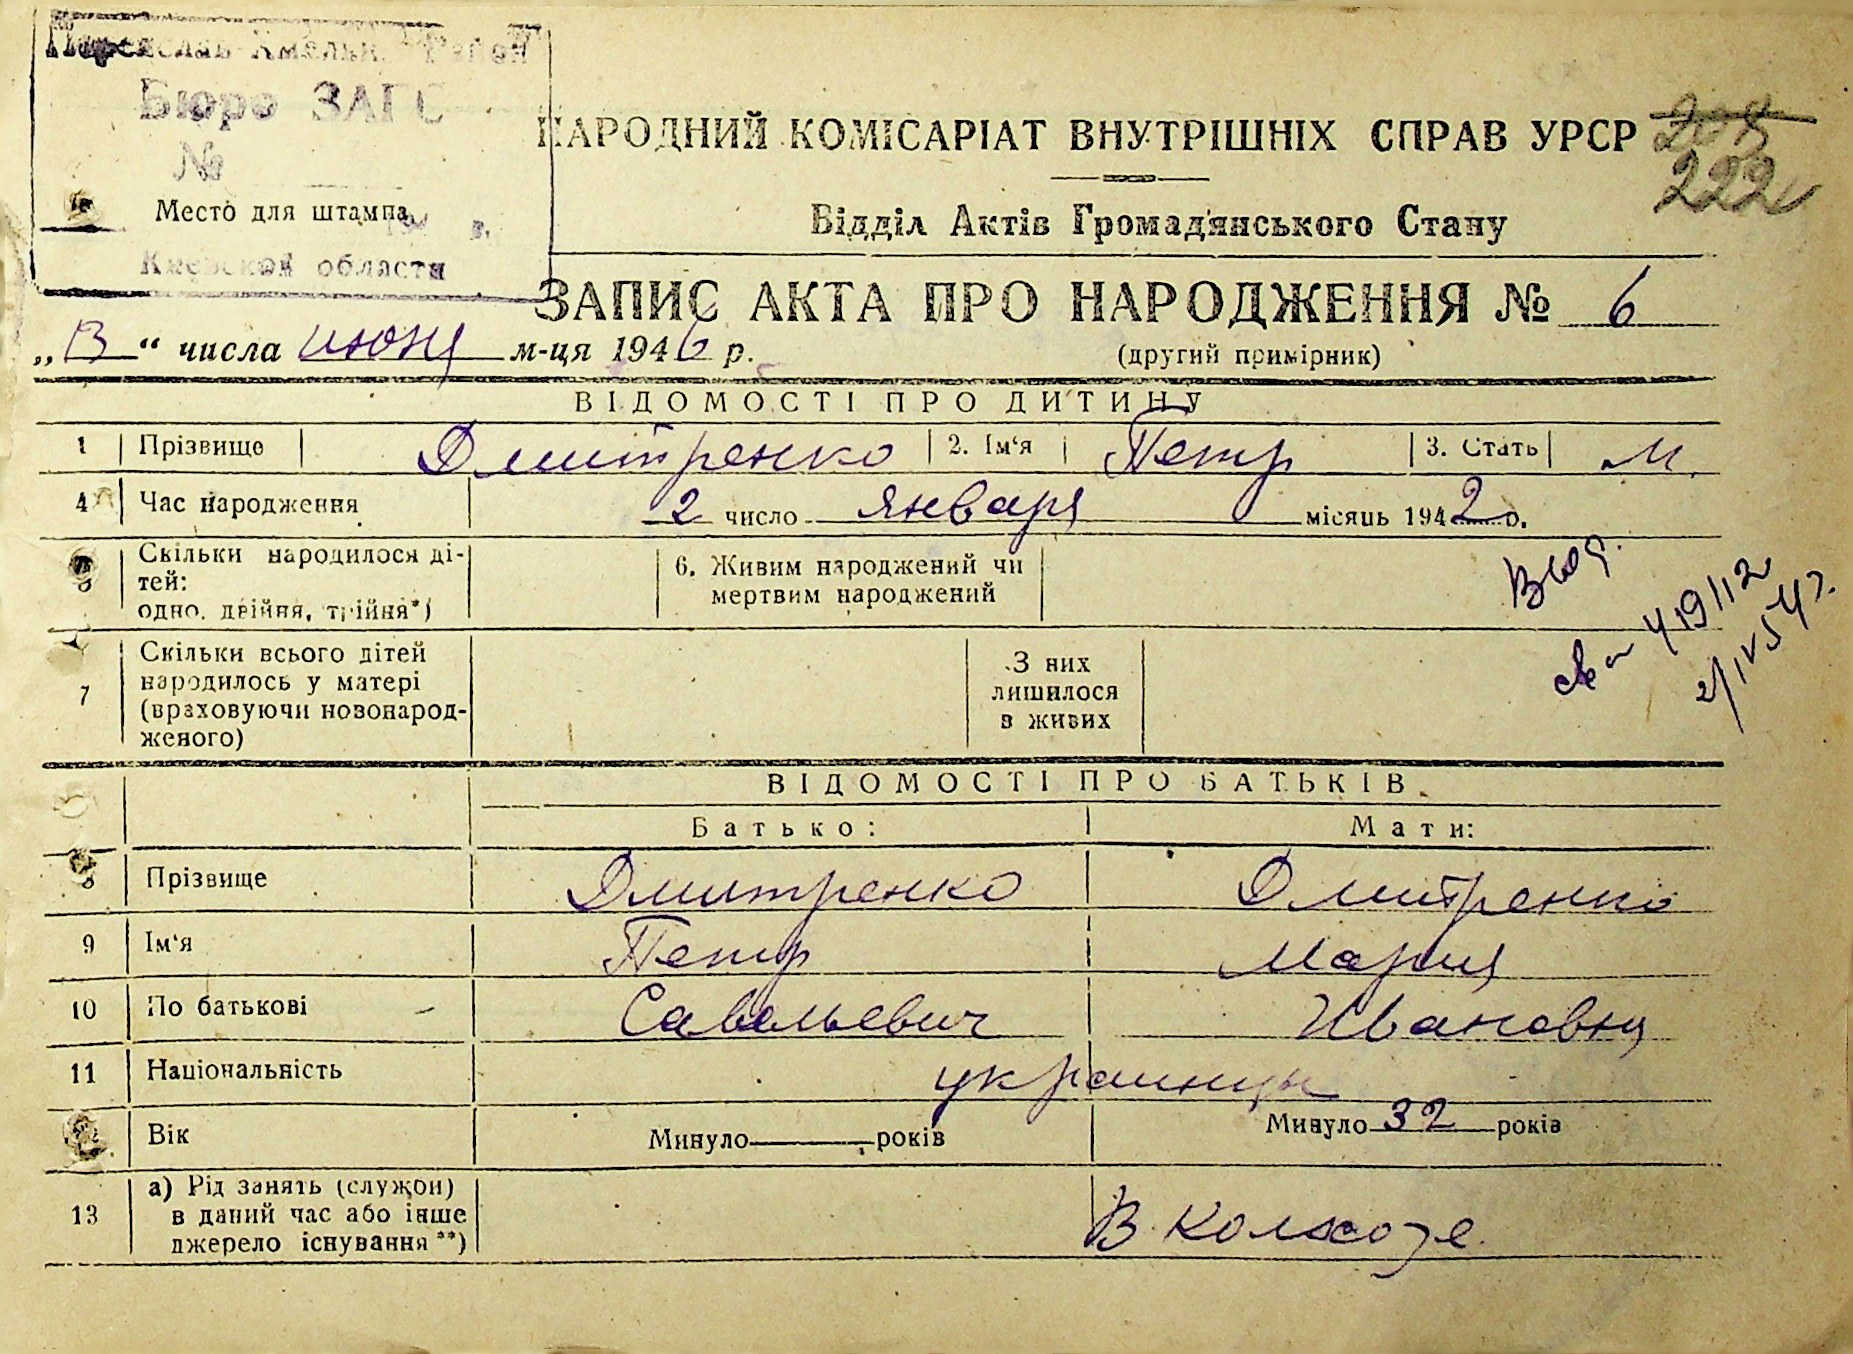 Бюро ЗАГС
№
Место для штампа
Киевской области
НАРОДНИЙ КОМІСАРІАТ ВНУТРІШНІХ СПРАВ УРСР
208
222
Відділ Актів Громадянського Стану
ЗАПИС АКТА ПРО НАРОДЖЕННЯ № 6
„13“ числа июня м-ця 1946 р.
(другий примірник)
ВІДОМОСТІ ПРО ДИТИНУ
1 Прізвище Дмитренко 2. Ім‘я Петр 3. Стать м.
4 Час народження 2 число января місяць 1942 р.
5 Скільки народилося ді-
тей:
одно, двійня, трійня*)
6. Живим народжений чи
мертвим народжений
7 Скільки всього дітей
народилось у матері
(враховуючи новонарод-
женого)
З них
лишилося
в живих
ВІДОМОСТІ ПРО БАТЬКІВ
Батько: Мати:
8 Прізвище Дмитренко Дмитренко
9 Ім‘я Петр Мария
10 По батькові Савельевич Ивановна
11 Національність украинцы
12 Вік Минуло років Минуло 32 років
13 а) Рід занять (служби)
в даний час або інше
джерело існування**)
В колхозе